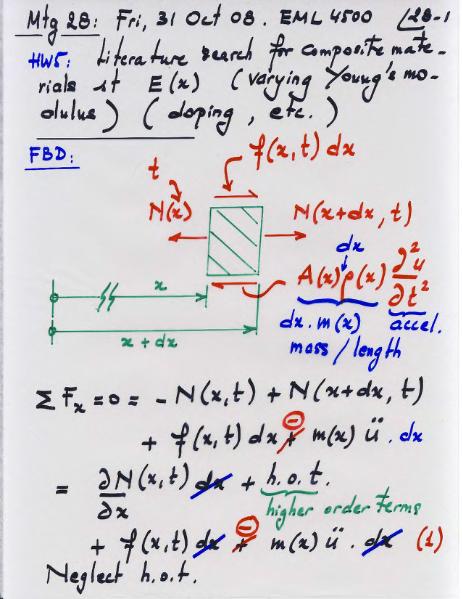 Mtg 28: Fri, 31 Oct 08. EML 4500 28-1
HW5: Literature search for composite mate-
rials st E(x) (varying Young's mo-
dulus) (doping, etc.)
FBD:
f(x,t) dx
t
N(x)
N(x+dx, t)
dx
A(x) ρ(x) ∂²u/∂t²
x
dx. m(x) accel.
x + dx
mass / length
Σ Fx = 0 = - N(x,t) + N(x+dx, t)
+ f(x,t) dx - m(x) ü . dx
= ∂N/∂x (x,t) dx + h.o.t.
higher order terms
+ f(x,t) dx - m(x) ü . dx (1)
Neglect h.o.t.